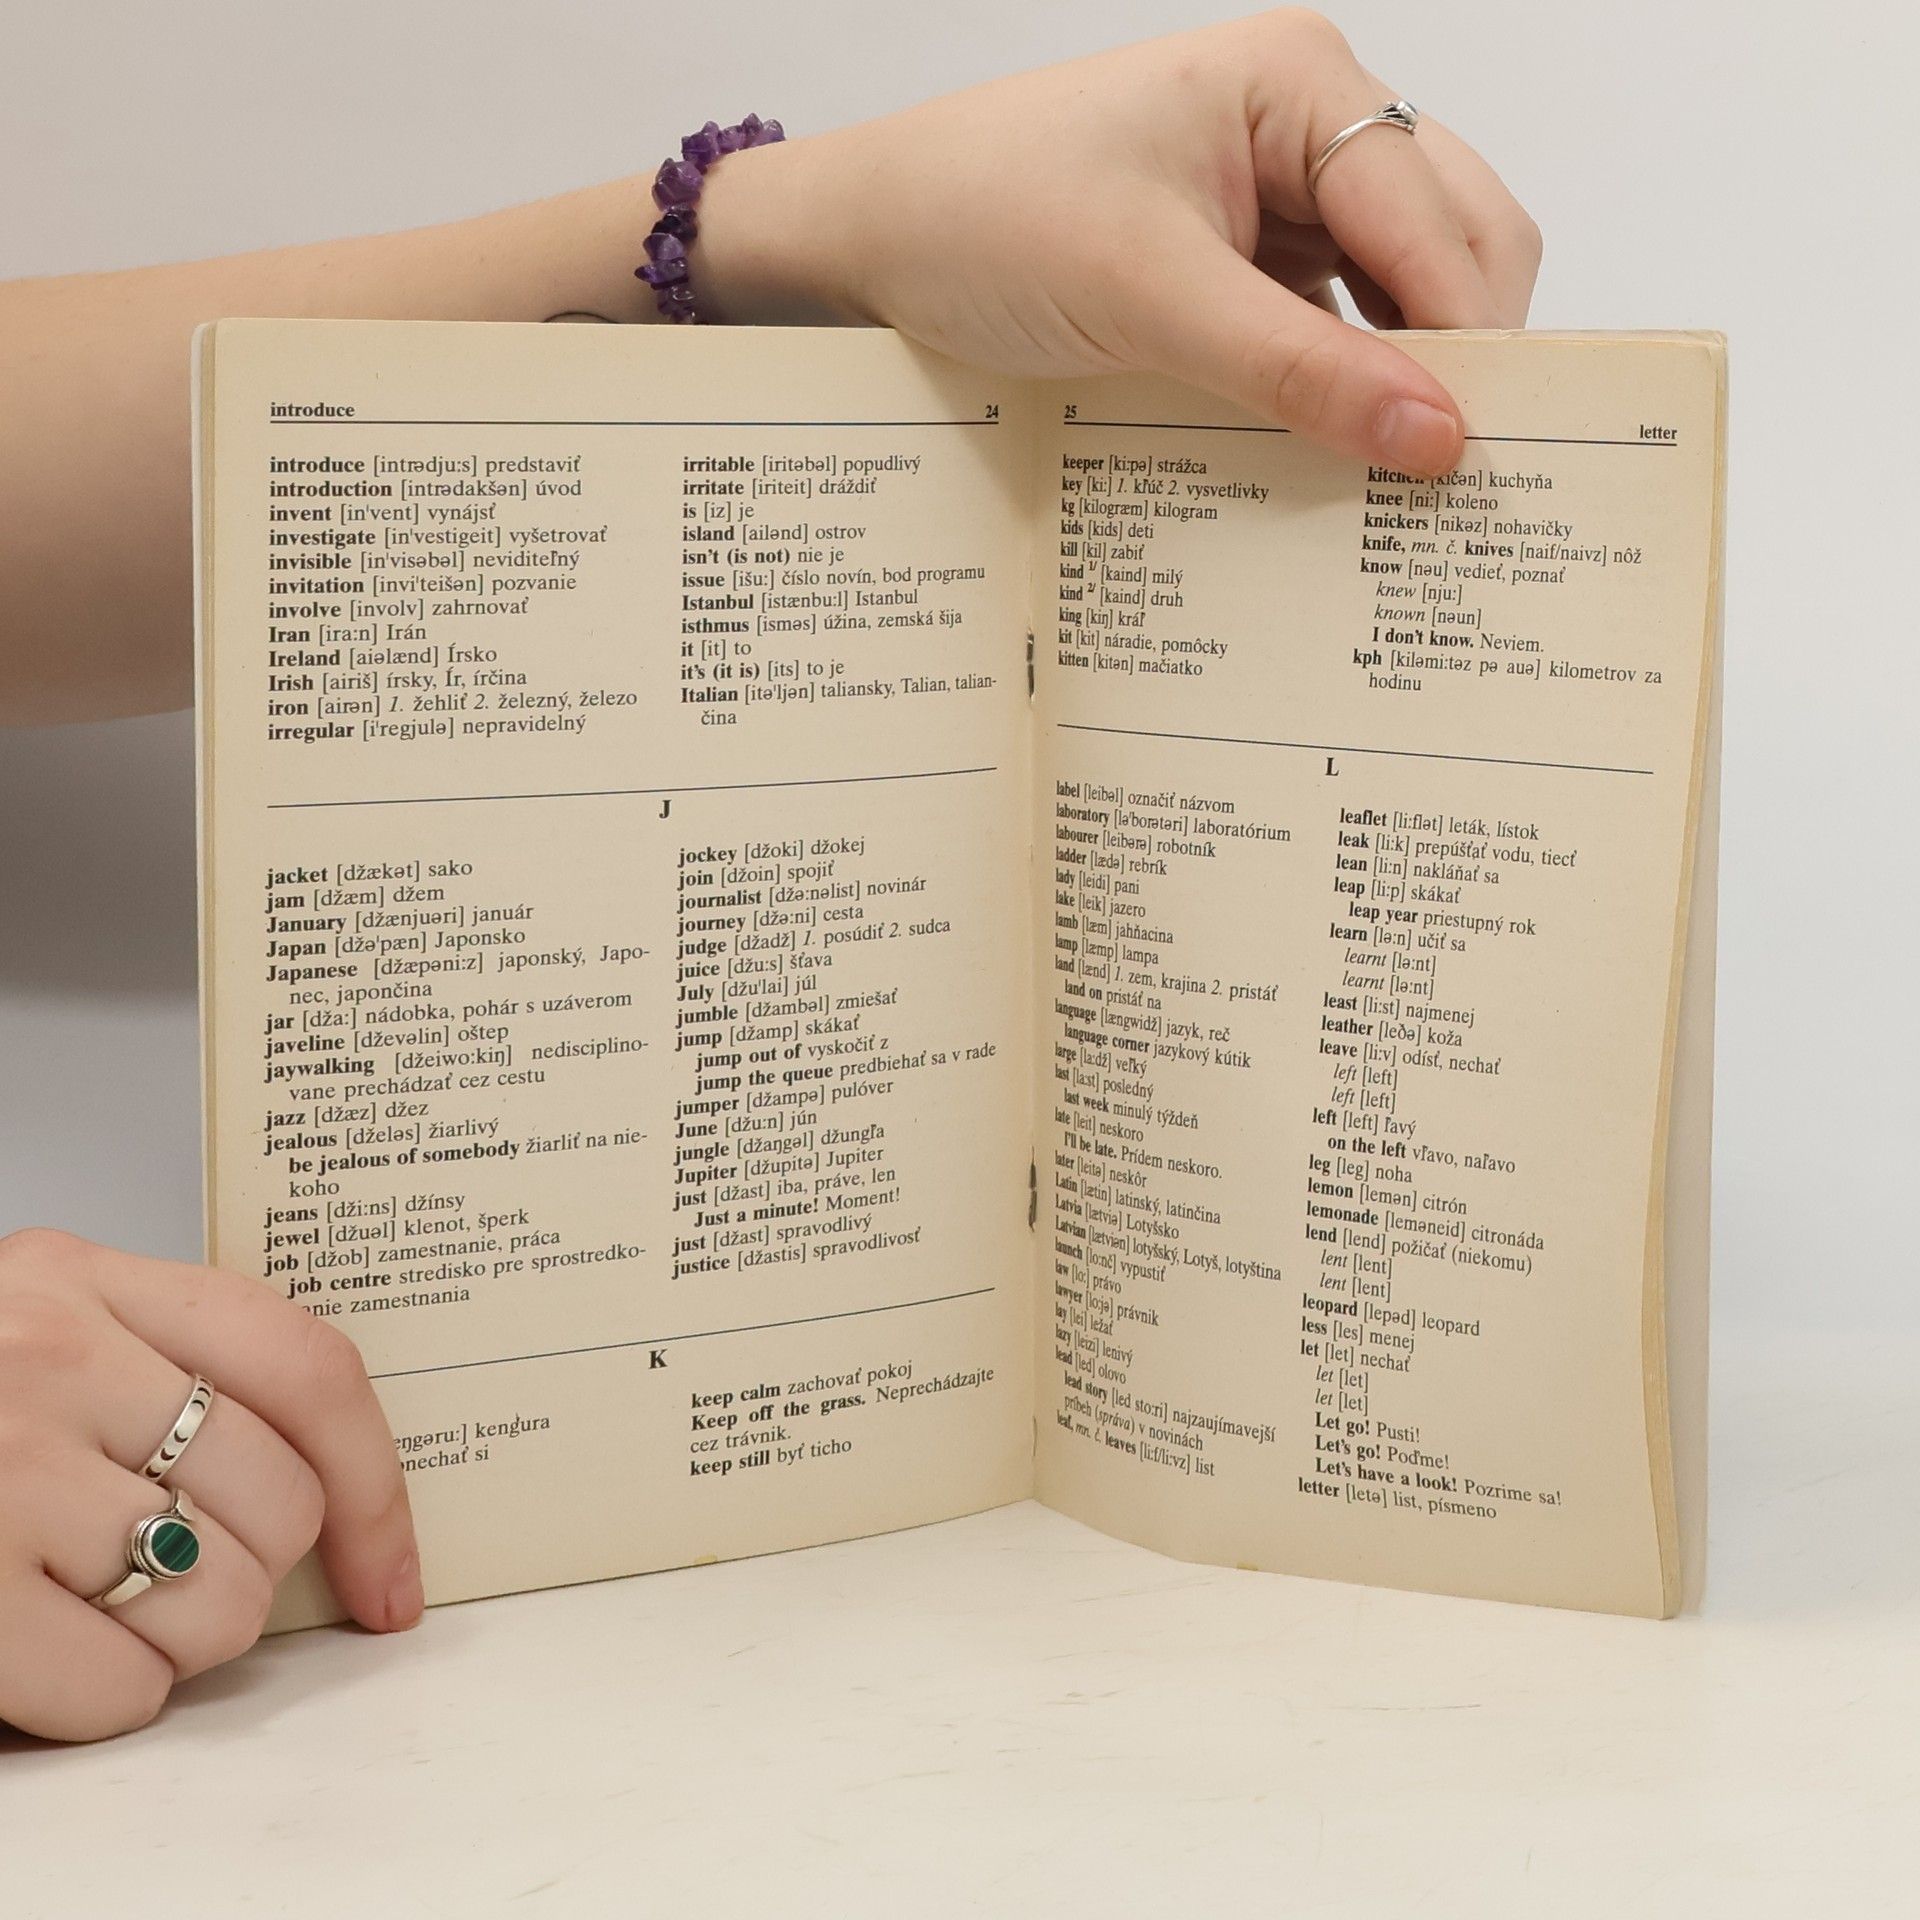 introduce 24
introduce [intrədju:s] predstaviť
introduction [intrədakšən] úvod
invent [in'vent] vynájsť
investigate [in'vestigeit] vyšetrovať
invisible [in'visəbəl] neviditeľný
invitation [invi'teišən] pozvanie
involve [involv] zahrnovať
Iran [ira:n] Irán
Ireland [aiəlænd] Írsko
Irish [airiš] írsky, Ír, írčina
iron [airən] 1. žehliť 2. železný, železo
irregular [i'regjulə] nepravidelný
irritable [iritəbəl] popudlivý
irritate [iriteit] dráždiť
is [iz] je
island [ailənd] ostrov
isn't (is not) nie je
issue [išu:] číslo novín, bod programu
Istanbul [istænbu:l] Istanbul
isthmus [isməs] úžina, zemská šija
it [it] to
it's (it is) [its] to je
Italian [itə'ljən] taliansky, Talian, talian-
čina
J
jacket [džækət] sako
jam [džæm] džem
January [džænjuəri] január
Japan [džə'pæn] Japonsko
Japanese [džæpəni:z] japonský, Japo-
nec, japončina
jar [dža:] nádobka, pohár s uzáverom
javeline [dževəlin] oštep
jaywalking [džeiwo:kiŋ] nedisciplino-
vane prechádzať cez cestu
jazz [džæz] džez
jealous [dželəs] žiarlivý
be jealous of somebody žiarliť na nie-
koho
jeans [dži:ns] džínsy
jewel [džuəl] klenot, šperk
job [džob] zamestnanie, práca
job centre stredisko pre sprostredko-
anie zamestnania
jockey [džoki] džokej
join [džoin] spojiť
journalist [džə:nəlist] novinár
journey [džə:ni] cesta
judge [džadž] 1. posúdiť 2. sudca
juice [džu:s] šťava
July [džu'lai] júl
jumble [džambəl] zmiešať
jump [džamp] skákať
jump out of vyskočiť z
jump the queue predbiehať sa v rade
jumper [džampə] pulóver
June [džu:n] jún
jungle [džaŋgəl] džungľa
Jupiter [džupitə] Jupiter
just [džast] iba, práve, len
Just a minute! Moment!
just [džast] spravodlivý
justice [džastis] spravodlivosť
K
eŋgəru:] kengura
nechať si
keep calm zachovať pokoj
Keep off the grass. Neprechádzajte
cez trávnik.
keep still byť ticho
25 letter
keeper [ki:pə] strážca
key [ki:] 1. kľúč 2. vysvetlivky
kg [kilogræm] kilogram
kids [kids] deti
kill [kil] zabiť
kind 1/ [kaind] milý
kind 2/ [kaind] druh
king [kiŋ] kráľ
kit [kit] náradie, pomôcky
kitten [kitən] mačiatko
kitchen [kičən] kuchyňa
knee [ni:] koleno
knickers [nikəz] nohavičky
knife, mn. č. knives [naif/naivz] nôž
know [nəu] vedieť, poznať
knew [nju:]
known [nəun]
I don't know. Neviem.
kph [kiləmi:təz pə auə] kilometrov za
hodinu
L
label [leibəl] označiť názvom
laboratory [lə'borətəri] laboratórium
labourer [leibərə] robotník
ladder [lædə] rebrík
lady [leidi] pani
lake [leik] jazero
lamb [læm] jahňacina
lamp [læmp] lampa
land [lænd] 1. zem, krajina 2. pristáť
land on pristáť na
language [læŋgwidž] jazyk, reč
language corner jazykový kútik
large [la:dž] veľký
last [la:st] posledný
last week minulý týždeň
late [leit] neskoro
I'll be late. Prídem neskoro.
later [leitə] neskôr
Latin [lætin] latinský, latinčina
Latvia [lætviə] Lotyšsko
Latvian [lætviən] lotyšský, Lotyš, lotyština
launch [lo:nč] vypustiť
law [lo:] právo
lawyer [lo:jə] právnik
lay [lei] ležať
lazy [leizi] lenivý
lead [led] olovo
lead story [led sto:ri] najzaujímavejší
príbeh (správa) v novinách
leaf, mn. č. leaves [li:f/li:vz] list
leaflet [li:flət] leták, lístok
leak [li:k] prepúšťať vodu, tiecť
lean [li:n] nakláňať sa
leap [li:p] skákať
leap year priestupný rok
learn [lə:n] učiť sa
learnt [lə:nt]
learnt [lə:nt]
least [li:st] najmenej
leather [leðə] koža
leave [li:v] odísť, nechať
left [left]
left [left]
left [left] ľavý
on the left vľavo, naľavo
leg [leg] noha
lemon [lemən] citrón
lemonade [leməneid] citronáda
lend [lend] požičať (niekomu)
lent [lent]
lent [lent]
leopard [lepəd] leopard
less [les] menej
let [let] nechať
let [let]
let [let]
Let go! Pusti!
Let's go! Poďme!
Let's have a look! Pozrime sa!
letter [letə] list, písmeno